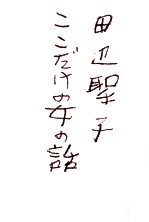 田辺聖子
ここだけの女の話